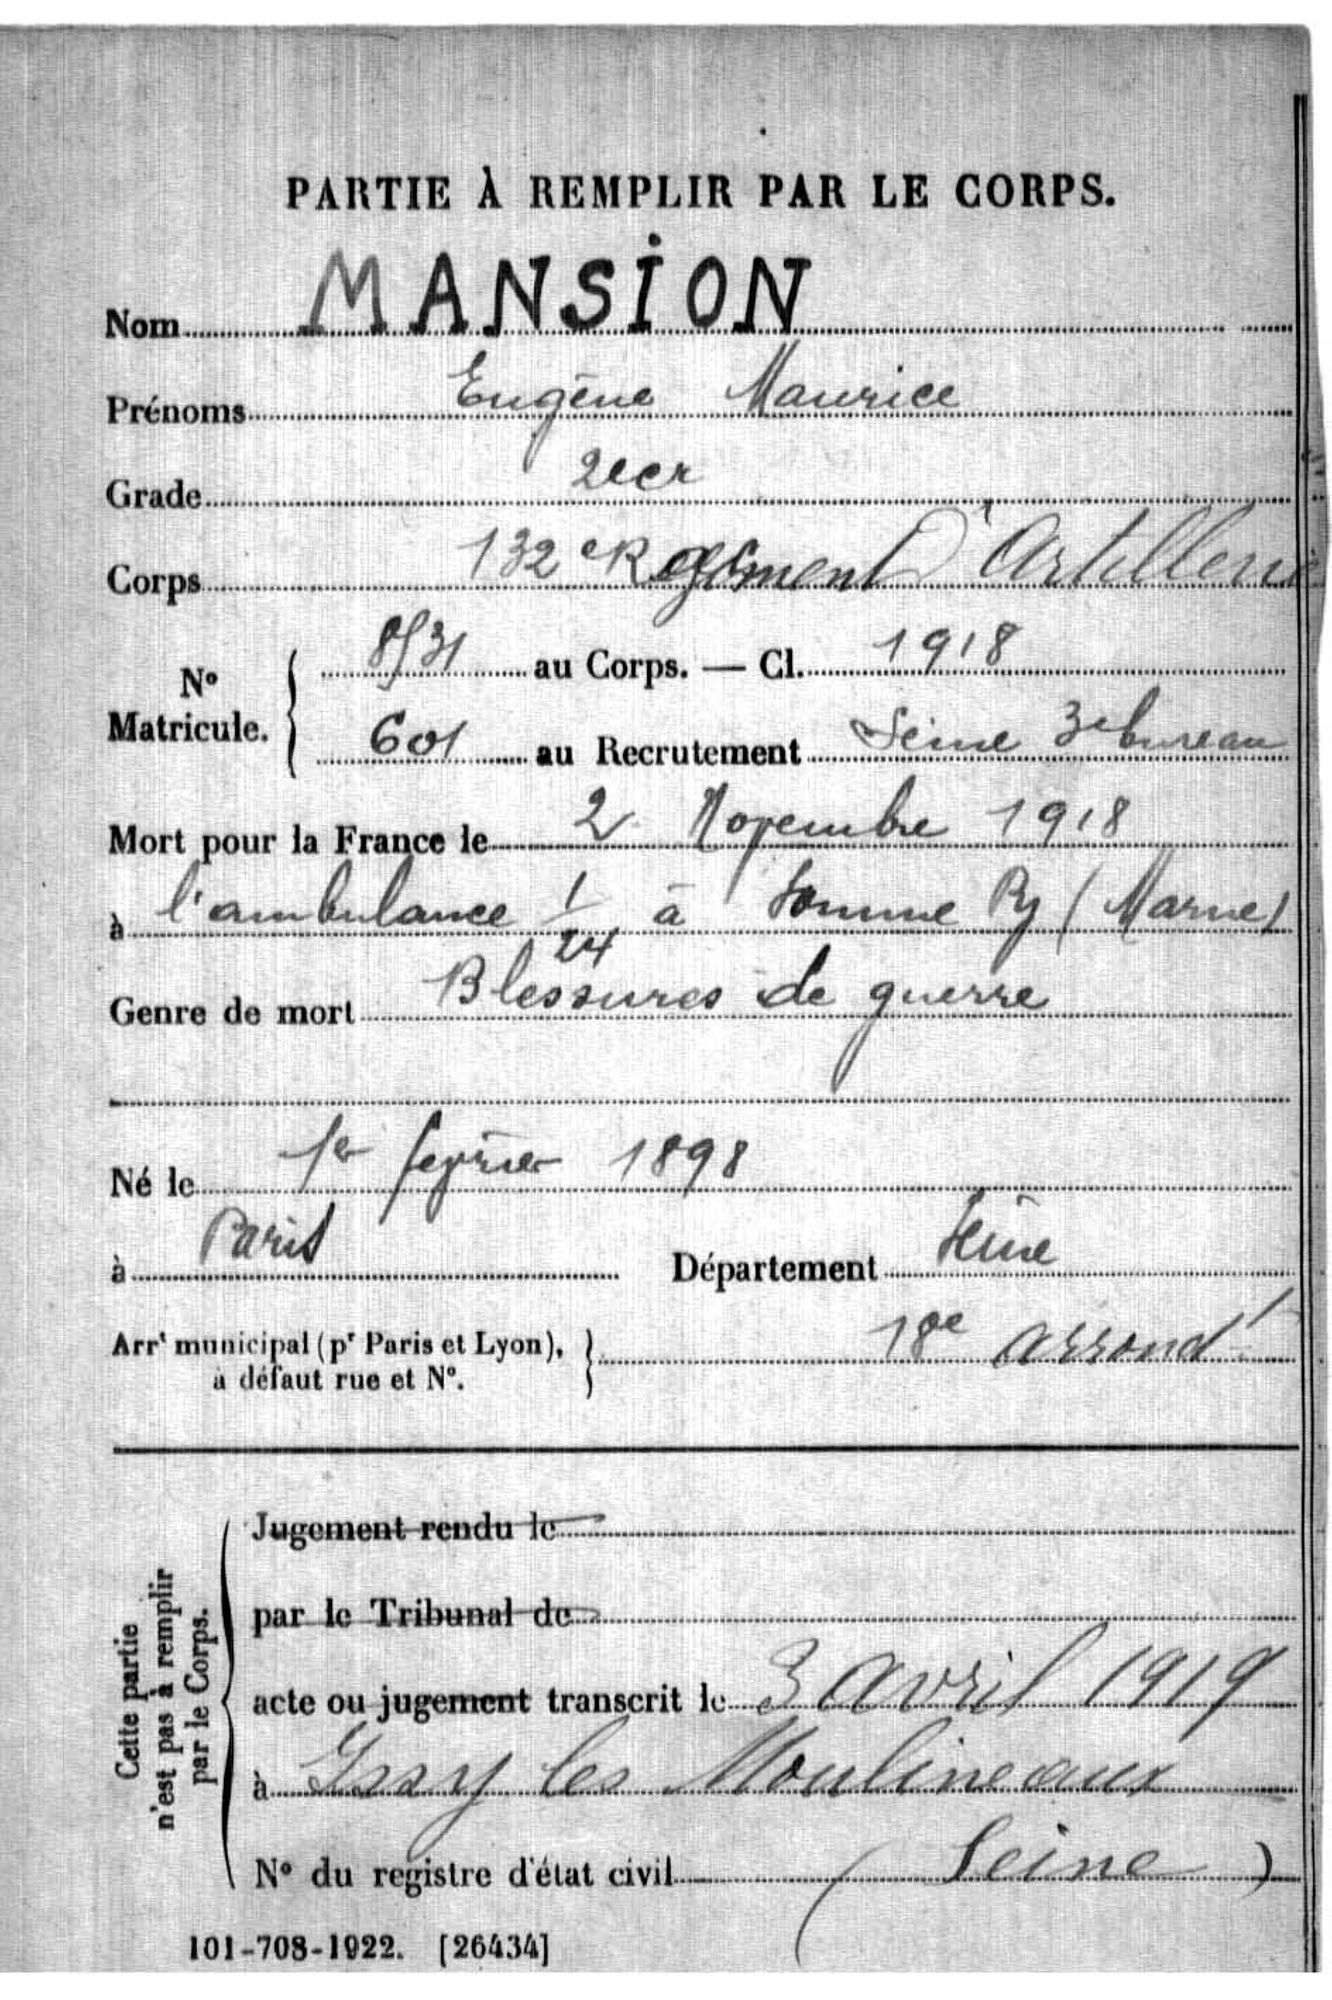 PARTIE À REMPLIR PAR LE CORPS.
Nom MANSION
Prénoms Eugène Maurice
Grade 2e cr
Corps 132e Regiment D'Artillerie
No Matricule. 8531 au Corps. — Cl. 1918
601 au Recrutement Seine 3e bureau
Mort pour la France le 2 Novembre 1918
à l'ambulance 1/24 à Somme Py (Marne)
Genre de mort Blessures de guerre
Né le 1er février 1898
à Paris Département Seine
Arrt municipal (pr Paris et Lyon), à défaut rue et No. 18e arrondt
Cette partie n'est pas à remplir par le Corps.
Jugement rendu le
par le Tribunal de
acte ou jugement transcrit le 3 avril 1919
à Issy les Moulineaux
No du registre d'état civil (Seine)
101-708-1922. [26434]